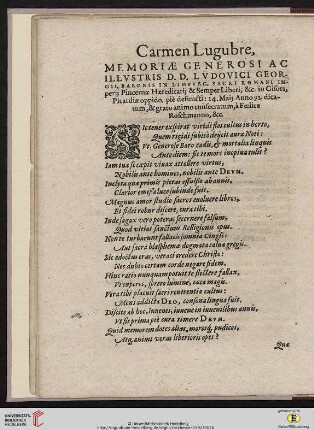 Carmen Lugubre,
MEMORIÆ GENEROSI AC
ILLVSTRIS D. D. LVDOVICI GEOR-
GII, BARONIS IN SACRI ROMANI IM-
perij Pincernæ Hæreditarij & Semper Liberi, &c. in
Picardiæ oppido, piè defuncti: 14. Maij Anno 92. dica-
tum, & grato animo consecratum, à Felice
Roschmanno, &c.
Sic tener exspirat viridi flos cultus in horto,
Quem rigidi subitò dejicit aura Noti:
Vt Generose Baro cadis, & mortalia linquis
Ante diem: sic te mors inopina tulit?
Iam tua se cœpit viuax attollere virtus,
Nobilis ante homines, nobilis ante DEVM.
Inclyta quæ primis pietas effulsit ab annis,
Clarior emissa luce subinde fuit.
Magnus amor studio sacros euoluere libros,
Et fidei robur discere, cura tibi.
Inde sagax vero poteras secernere falsum,
Quod vitiat sanctum Religionis opus.
Non te turbarunt fallacis somnia Cingli:
Aut sacra blasphemæ dogmata calua gregis.
Sic edoctus eras, veraci credere Christo:
Nec dubis certam corde negare fidem.
Huius ratio nunquam potuit te flectere fallax,
Vt sperni, spreto lumine, cæca magis.
Vera tibi placuit sacri reuerentia cultus:
Mens addicta DEO, consona lingua fuit.
Discite ab hoc, Iuuenes, iuuene in iuuenilibus annis,
Vt sit prima piè cura timere DEVM.
Quid memorem dotes alias, moresq́, pudicos,
Atq́, animi veras liberioris opes?
Quæ
UNIVERSITÄTS-
BIBLIOTHEK
HEIDELBERG
© Universitätsbibliothek Heidelberg
gefördert durch die